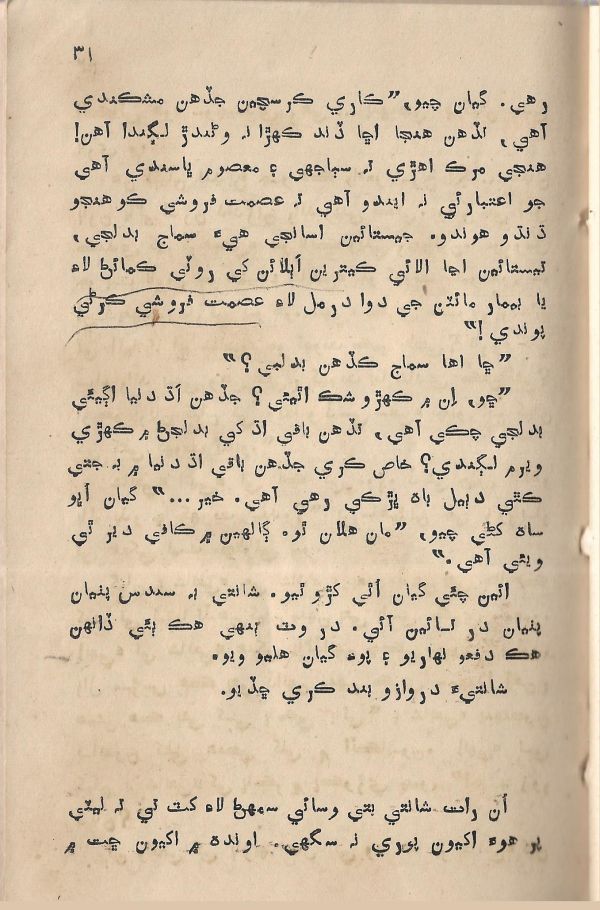 ۳۱
رهي. گيان چيو، ”ڪاري ڪرسچين جڏهن مشڪندي
آهي، تڏهن هنجا اڇا ڏند ڪهڙا نہ وڻندڙ لڳندا آهن!
هنجي مرڪ اهڙي تہ سٻاجهي ۽ معصوم ڀاسندي آهي
جو اعتبار ئي نہ ايندو آهي تہ عصمت فروشي ڪو هنجو
ڌنڌو هوندو. جيستائين اسانجي هيءَ سماج بدلجي،
تيستائين اڃا الائي ڪيترين اَٻلائن کي روٽي ڪمائڻ لاءِ
يا بيمار مائٽن جي دوا درمل لاءِ عصمت فروشي ڪرڻي
پوندي!“
”ڇا اها سماج ڪڏهن بدلبي؟“
”ڇو، اِن ۾ ڪهڙو شڪ اٿيئي؟ جڏهن اَڌ دنيا اڳيئي
بدلجي چڪي آهي، تڏهن باقي اڌ کي بدلجڻ ۾ ڪهڙي
ويرم لڳندي؟ خاص ڪري جڏهن باقي اڌ دنيا ۾ بہ جتي
ڪٿي دٻيل باهه ڀڙڪي رهي آهي. خير...“ گيان اُڀو
ساهه کڻي چيو، ”مان هلان ٿو. ڳالهين ۾ ڪافي دير ٿي
ويئي آهي.“
ائين چئي گيان اُٿي کڙو ٿيو. شانتي بہ سندس پٺيان
پٺيان در تائين آئي. در وٽ ٻنهي هڪ ٻئي ڏانهن
هڪ دفعو نهاريو ۽ پوءِ گيان هليو ويو.
شانتيءَ دروازو بند ڪري ڇڏيو.
اُن رات شانتي بتي وسائي سمهڻ لاءِ کٽ تي تہ ليٽي
پر هوءَ اکيون پوري نہ سگهي. اونده ۾ اکيون ڇت ۾